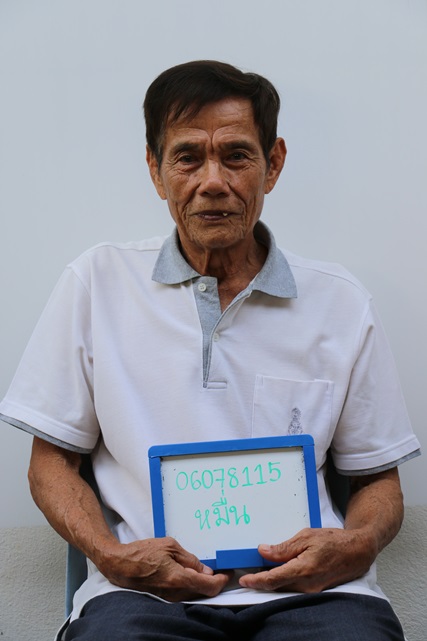 06078115
หมื่น